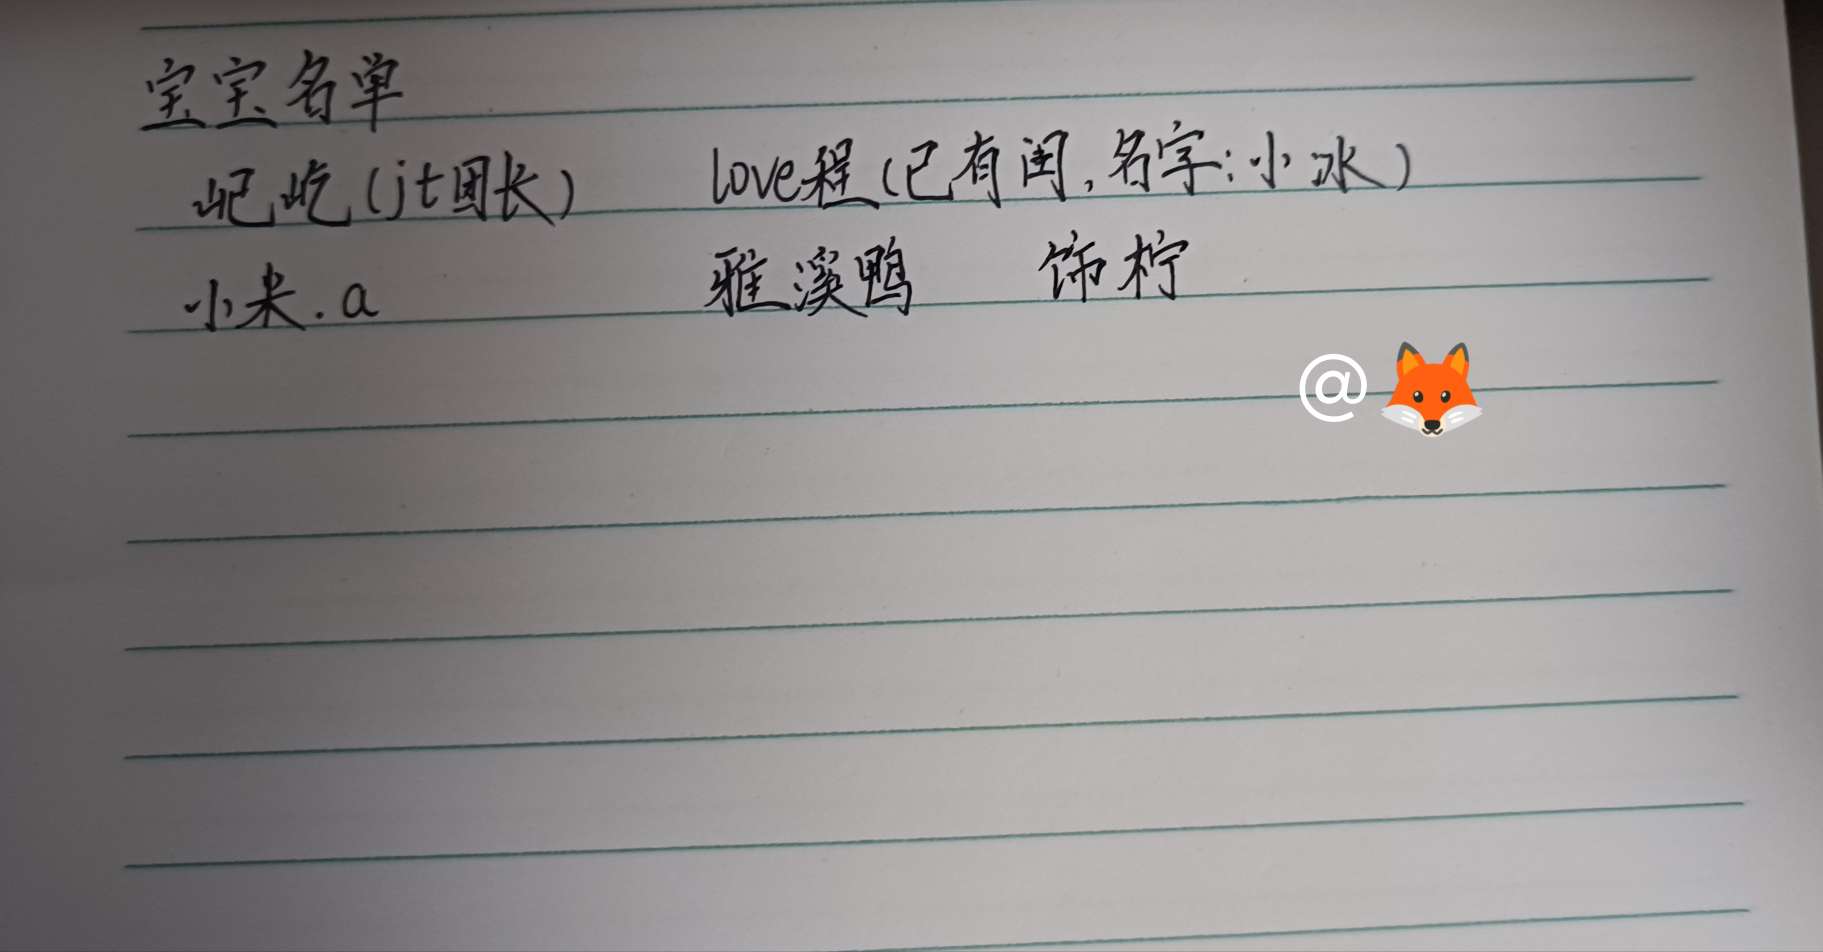 宝宝名单
屺屹(jt团长) love程(已有闺,名字:小冰)
小米.a 雅溪鸭 饰柠
@🦊